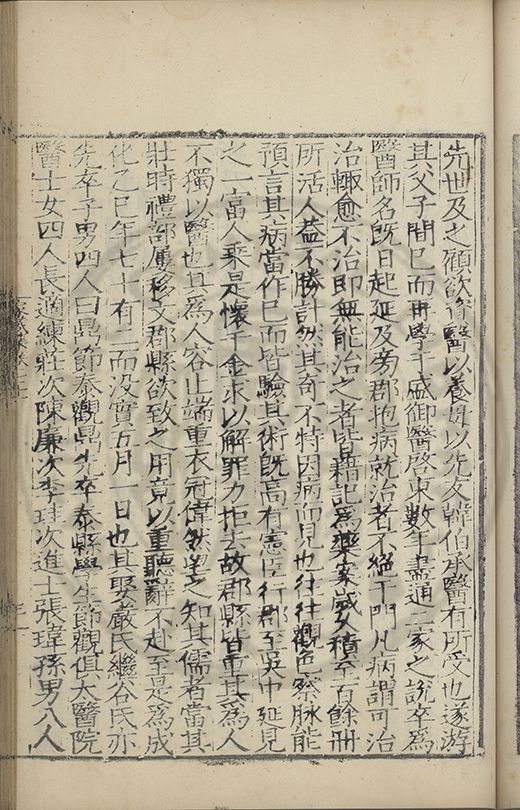 先世及之顧欲資醫以養母以先友韓伯承醫有所受也遂游
其父子間已而再學于盛御醫啓東數年盡通二家之說卒爲
醫師名既日起延及旁郡抱病就治者不絕于門凡病謂可治
治輒愈不治即無能治之者皆籍記爲藥案歲久積至百餘冊
所活人益不勝計然其奇不特因病而見也往往觀色察脉能
預言其病當作已而皆驗其術既高有憲臣行郡至吳中延見
之一富人乘是懷千金求以解罪力拒去故郡縣皆重其爲人
不獨以醫也其爲人容止端重衣冠偉然望之知其儒者當其
壯時禮部屢移文郡縣欲致之用竟以重聽辭不赴至是爲成
化乙巳年七十有二而没實五月一日也其娶嚴氏繼谷氏亦
先卒子男四人曰鼎節泰觀鼎先卒泰縣學生節觀俱太醫院
醫士女四人長適練莊次陳廉次李瑋次進士張瑋孫男八人